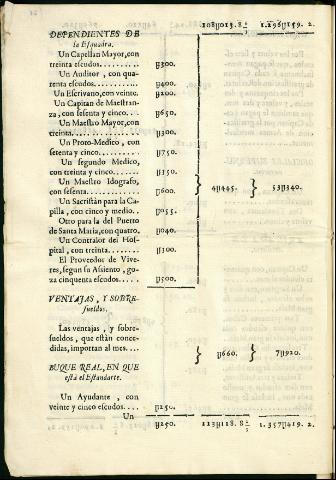 108U013.8 1.296U159. 2.
DEPENDIENTES DE
la Esquadra.
Un Capellan Mayor, con
treinta escudos......... U300.
Un Auditor, con qua-
renta escudos........... U400.
Un Escrivano, con veinte. U200.
Un Capitan de Maestran-
za, con sesenta y cinco... U650.
Un Maestro Mayor, con
treinta................. U300.
Un Proto-Medico, con
setenta y cinco.......... U750.
Un segundo Medico,
con treinta y cinco...... U350.
Un Maestro Idografo,
con sesenta............. U600. 4U445. 53U340.
Un Sacristán para la Ca-
pilla, con cinco y medio.. U055.
Otro para la del Puerto
de Santa Maria, con quatro. U040.
Un Contralor del Hos-
pital, con treinta........ U300.
El Proveedor de Vive-
res, segun su Asiento, go-
za cinquenta escudos.... U500.
VENTAJAS, Y SOBRE-
sueldos.
Las ventajas, y sobre-
sueldos, que están conce-
didas, importan al mes.... U660. 7U920.
BUQUE REAL, EN QUE
está el Estandarte.
Un Ayudante, con
veinte y cinco escudos.... U250.
Un U250. 113U118.8 1.357U419. 2.